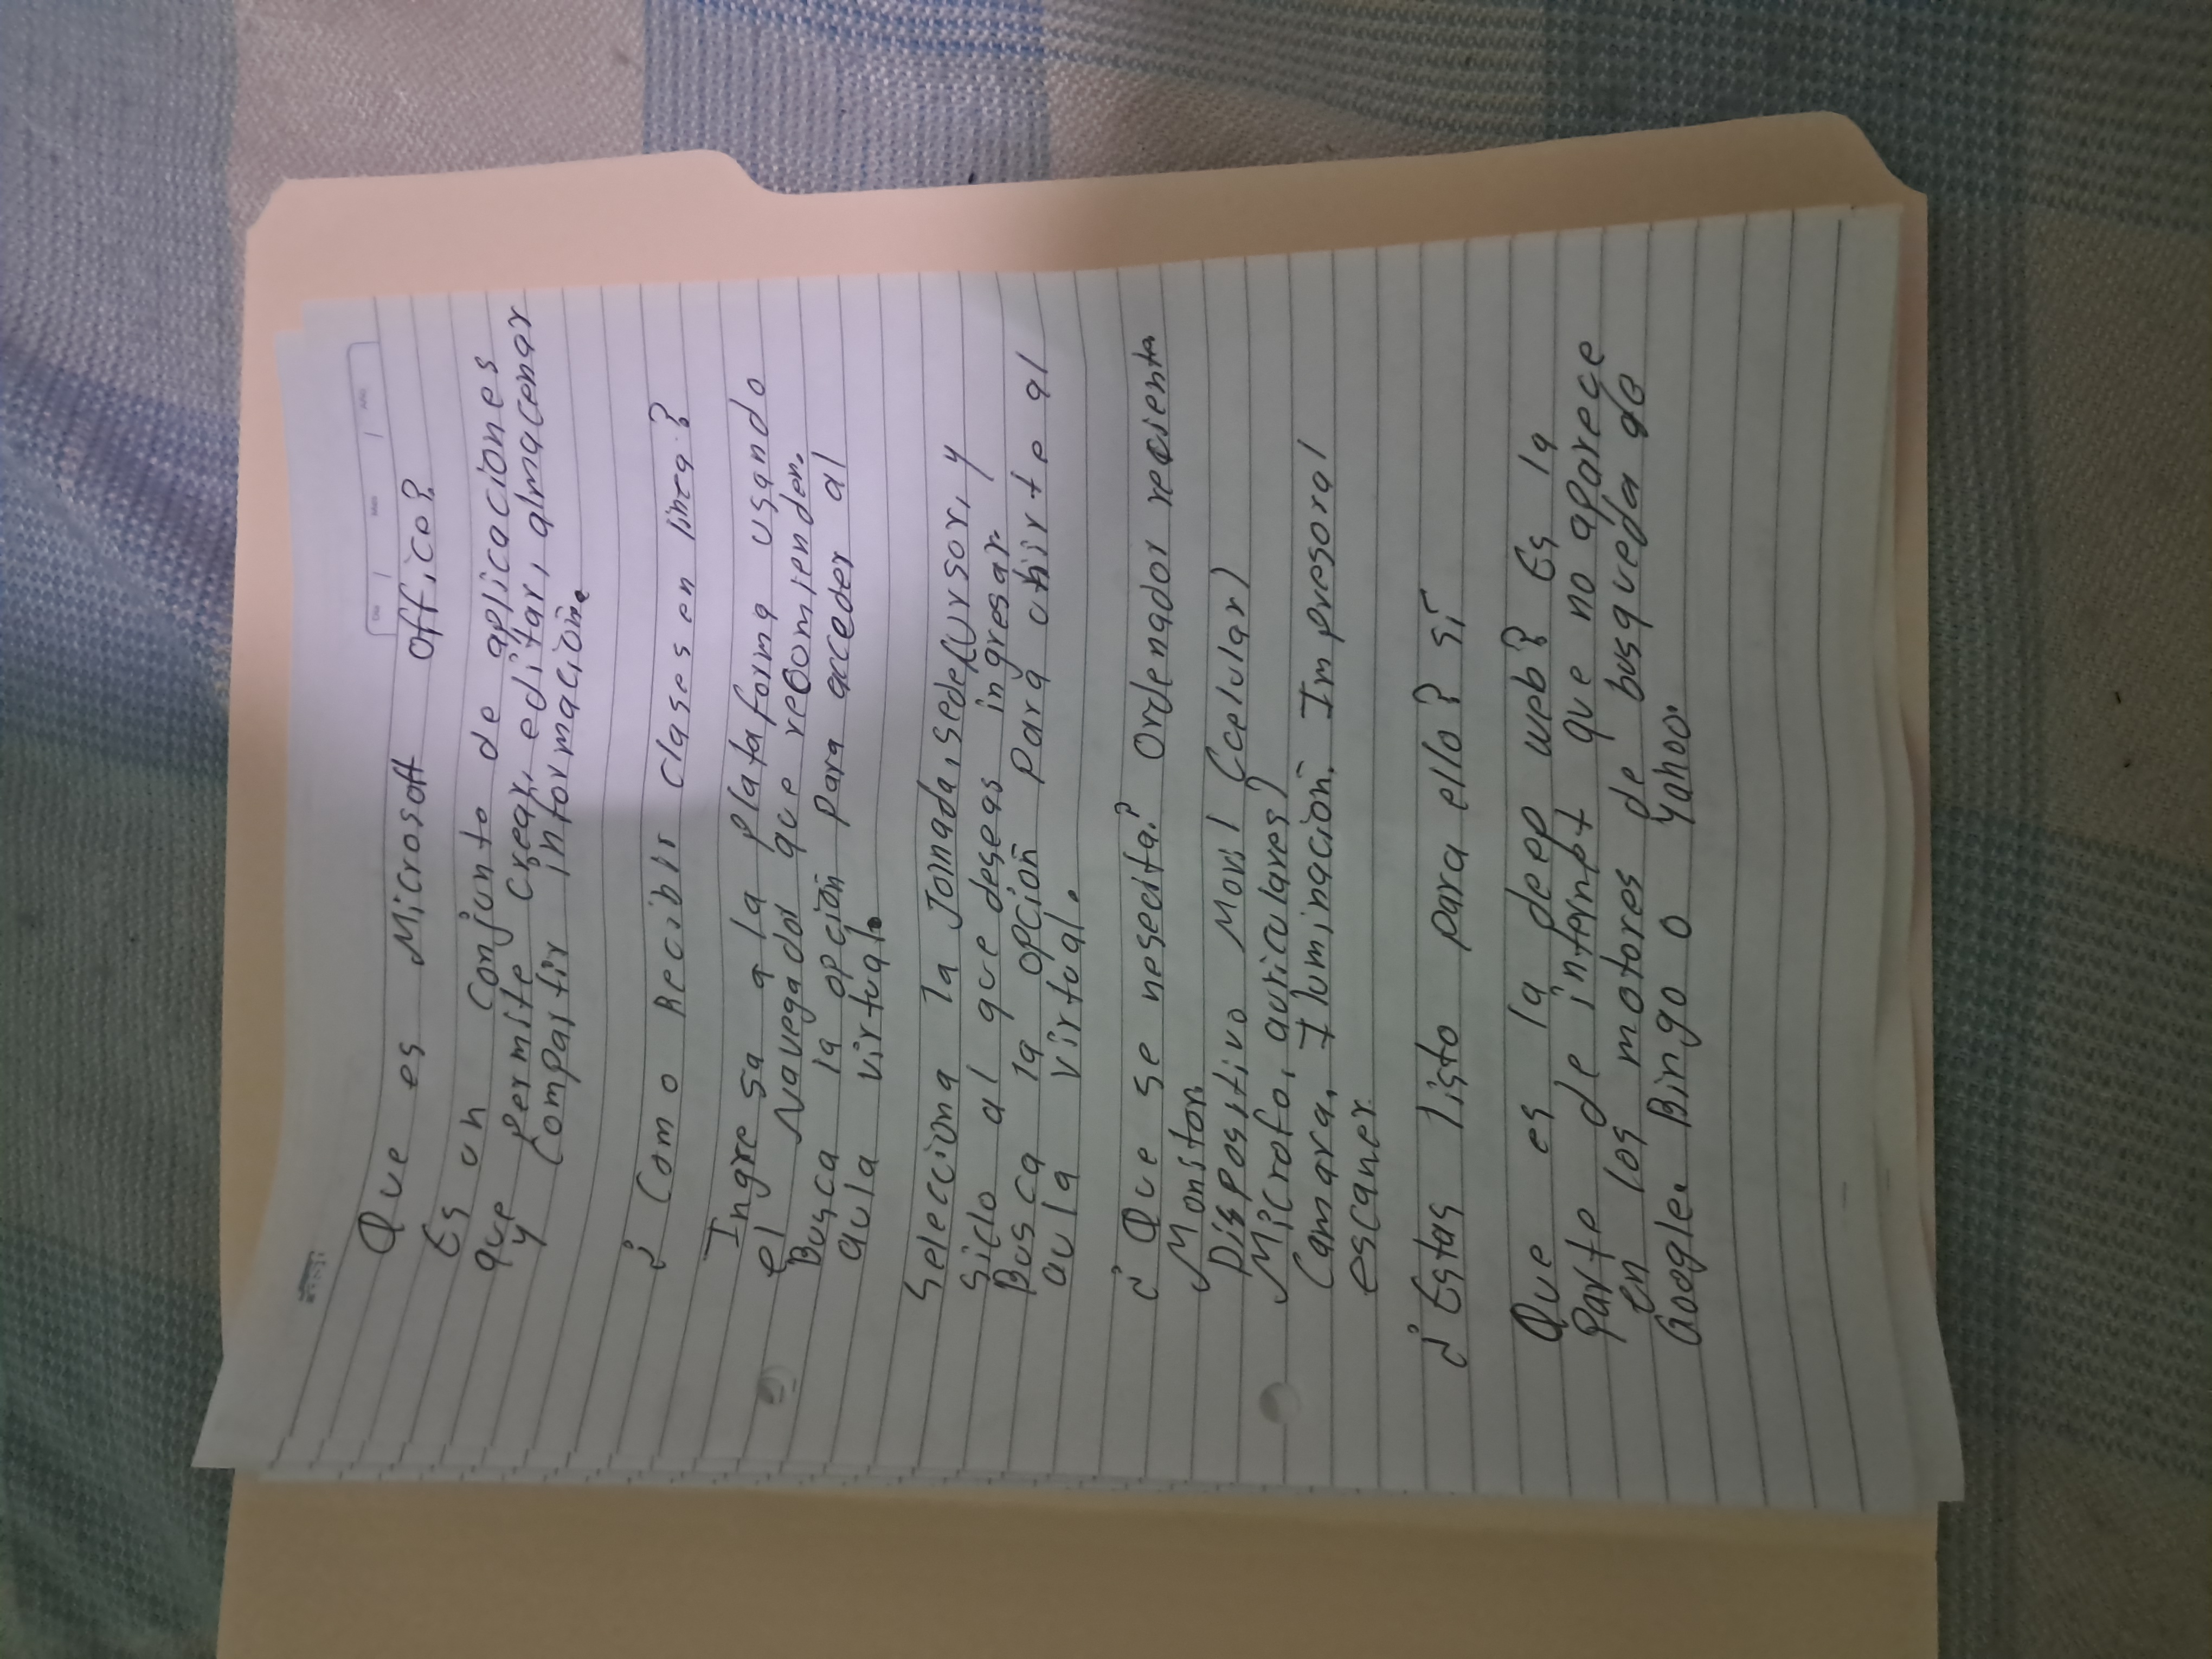 Que es Microsoft office?
Es un conjunto de aplicaciones
que permite crear, editar, almacenar
y compartir información.
¿Como Recibir clases en linea?
Ingresa a la plataforma usando
el Navegador que recomienden.
Busca la opción para acceder al
aula virtual.
Selecciona la Jornada, sede, cursor, y
siclo al que deseas ingresar
Busca la opción para unirte al
aula virtual.
¿Que se neseeita? Ordenador recienta
Monitor
Dispositivo Movil (celular)
Microfo, auriculares)
Camara, Iluminación, Impresoral
escaner
¿Estas listo para ello? sí
Que es la deep web? Es la
Parte de internet que no aparece
en los motores de busqueda de
Google. Bingo o Yahoo.